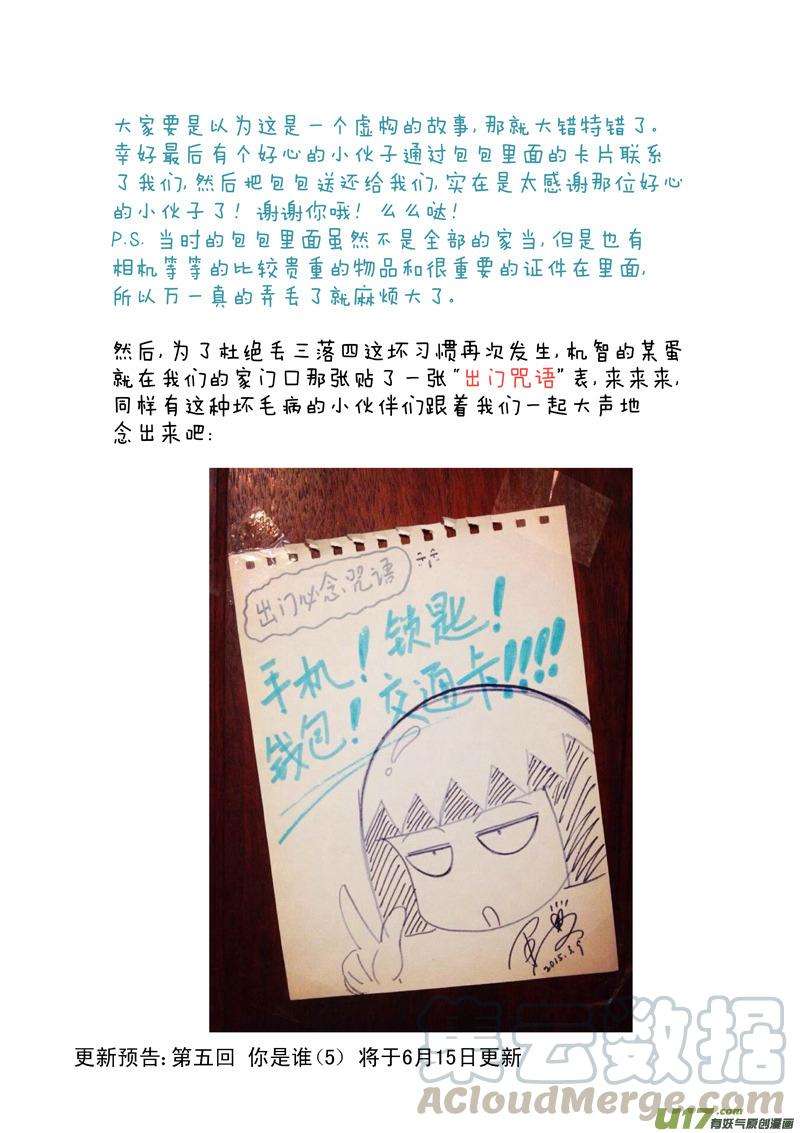 大家要是以为这是一个虚构的故事,那就大错特错了。
幸好最后有个好心的小伙子通过包包里面的卡片联系
了我们,然后把包包送还给我们,实在是太感谢那位好心
的小伙子了!谢谢你哦!么么哒!
P.S. 当时的包包里面虽然不是全部的家当,但是也有
相机等等的比较贵重的物品和很重要的证件在里面,
所以万一真的弄丢了就麻烦大了。
然后,为了杜绝丢三落四这坏习惯再次发生,机智的某蛋
就在我们的家门口那张贴了一张“出门咒语”表,来来来,
同样有这种坏毛病的小伙伴们跟着我们一起大声地
念出来吧:
出门必念咒语
手机!钥匙!
钱包!交通卡!!!!
2015.3.9
更新预告:第五回 你是谁(5) 将于6月15日更新
集云数据
ACloudMerge.com
U17.com
有妖气原创漫画